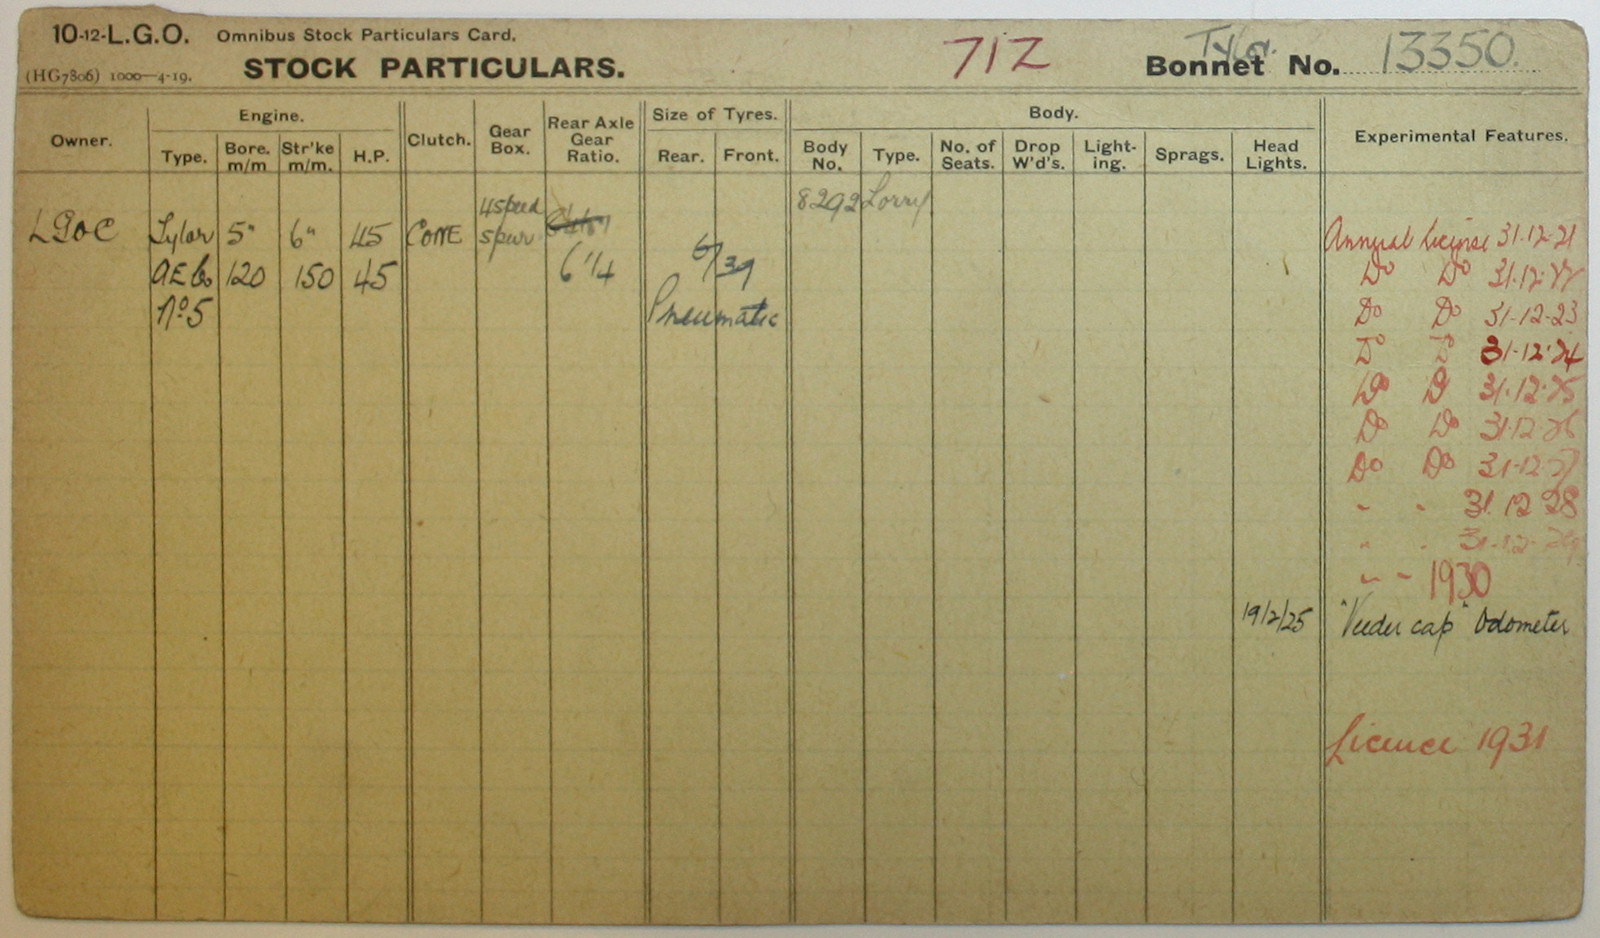 10-12-L.G.O. Omnibus Stock Particulars Card.
(HG7806) 1000—4-19. STOCK PARTICULARS. 71Z Tylor. Bonnet No. 13350.
Owner. Engine. Clutch. Gear Box. Rear Axle Gear Ratio. Size of Tyres. Body. Experimental Features.
Type. Bore. m/m Str'ke m/m. H.P. Rear. Front. Body No. Type. No. of Seats. Drop W'd's. Light-ing. Sprags. Head Lights.
8292 Lorry
LGOC Tylor 5" 6" 45 CONE 4 speed spur Annual License 31-12-21
AECo 120 150 45 6'1/4 Do Do 31.12.22
No 5 Pneumatic Do Do 31-12-23
Do Do 31-12-24
Do Do 31.12.25
Do Do 31.12.26
Do Do 31-12-27
" " 31 12 28
" " 31-12-29
" " 1930
19/2/25 "Veeder cap" Odometer
Licence 1931